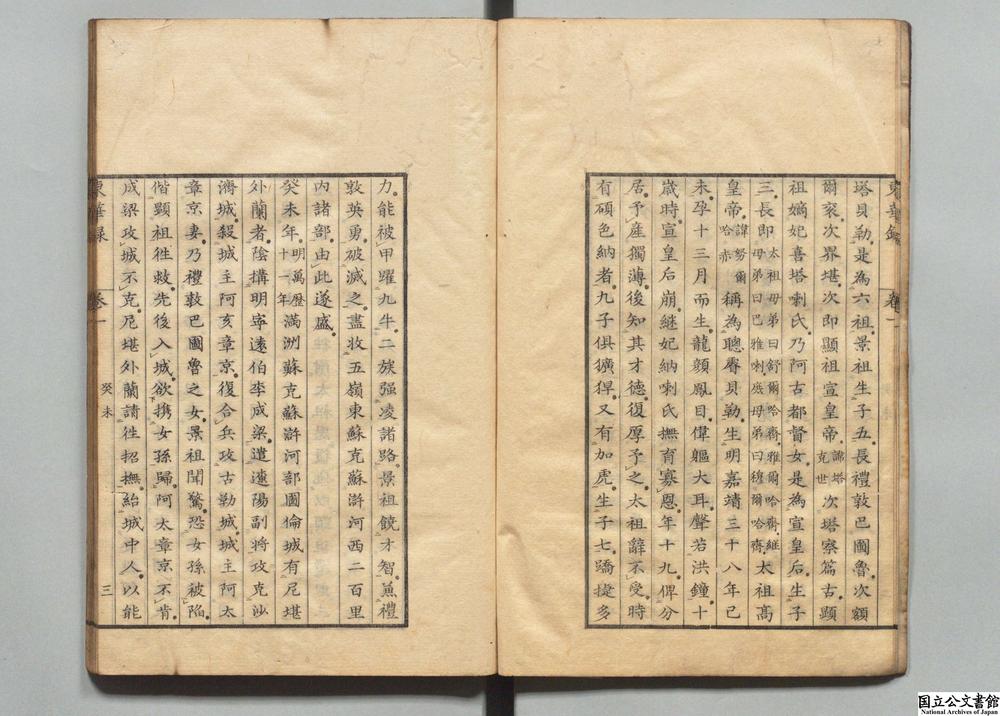 東華錄 卷一
塔貝勒是為六祖景祖生子五長禮敦巴圖魯次額
爾袞次界堪次即顯祖宣皇帝諱塔克世次塔察篇古顯
祖嫡妃喜塔喇氏乃阿古都督女是為宣皇后生子
三長即太祖母弟曰舒爾哈齋雅爾哈齋繼母弟曰巴雅喇庶母弟曰穆爾哈齋太祖高
皇帝諱努爾哈赤稱為聰睿貝勒生明嘉靖三十八年己
未孕十三月而生龍顏鳳目偉軀大耳聲若洪鐘十
歲時宣皇后崩繼妃納喇氏撫育寡恩年十九俾分
居予產獨薄後知其才德復厚予之太祖辭不受時
有碩色納者九子俱獷猂又有加虎生子七驕捷多
力能被甲躍九牛二族强凌諸路景祖饒才智兼禮
敦英勇破滅之盡收五嶺東蘇克蘇滸河西二百里
內諸部由此遂盛
癸未年明萬歷十一年滿洲蘇克蘇滸河部圖倫城有尼堪
外蘭者陰搆明寧遠伯李成梁遣遼陽副將攻克沙
濟城殺城主阿亥章京復合兵攻古勒城城主阿太
章京妻乃禮敦巴圖魯之女景祖聞驚恐女孫被陷
偕顯祖徃救先後入城欲携女孫歸阿太章京不肯
成梁攻城不克尼堪外蘭請徃招撫紿城中人以能
東華錄 卷一 癸未 三
国立公文書館
National Archives of Japan